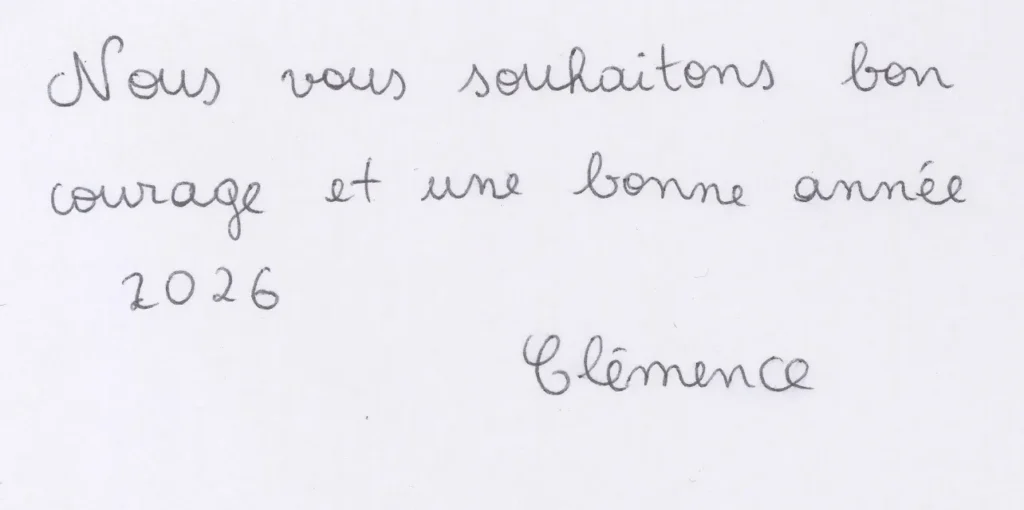 Nous vous souhaitons bon
courage et une bonne année
2026
Clémence